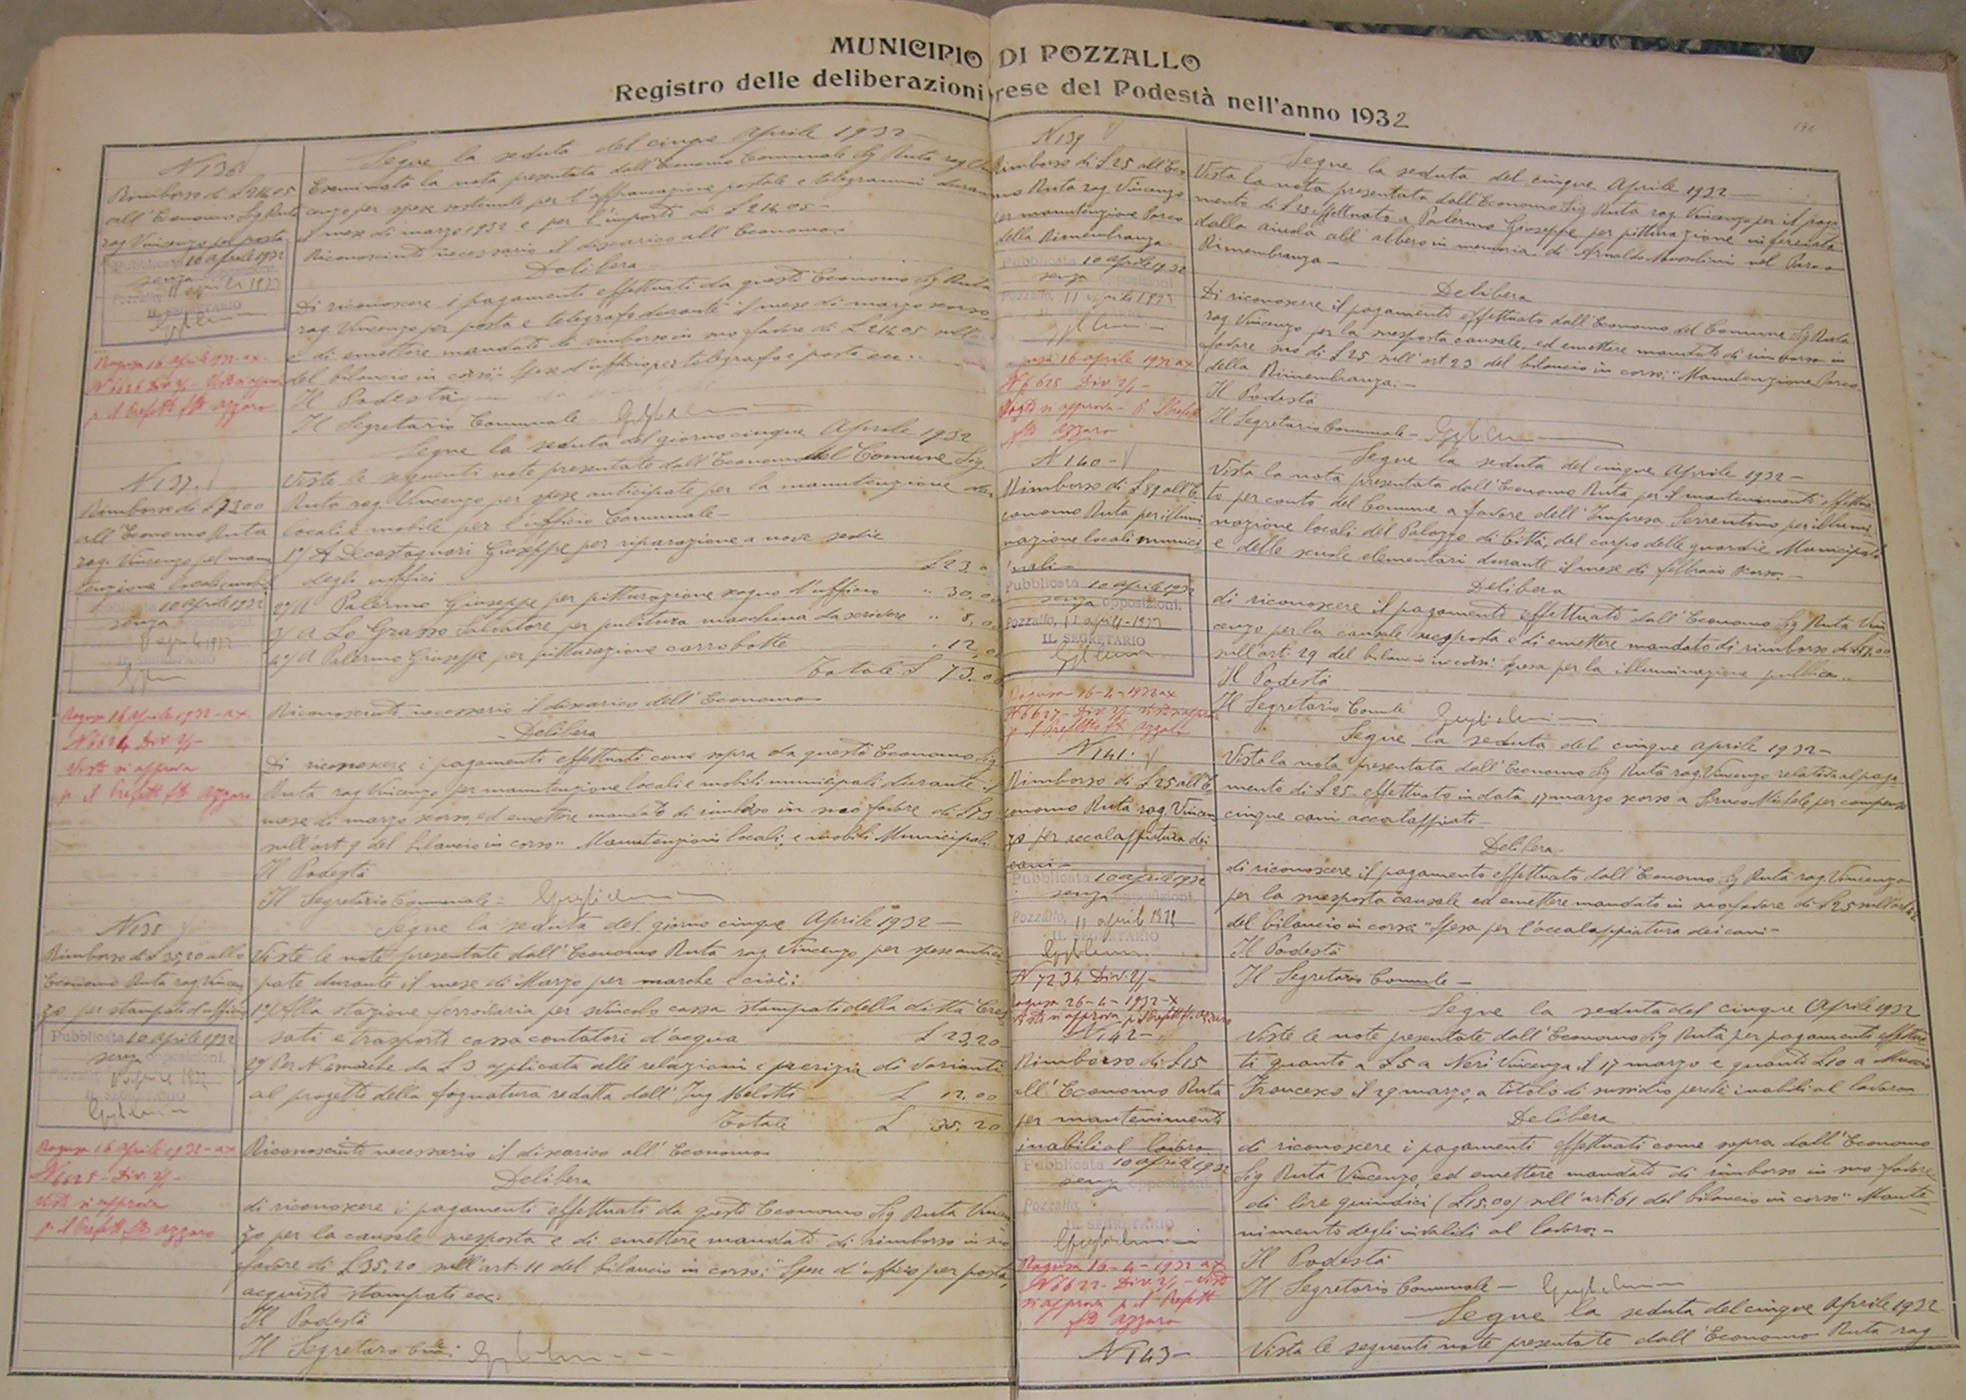 MUNICIPIO DI POZZALLO
Registro delle deliberazioni prese del Podestà nell'anno 1932
N 136
Rimborso di £ 214.05
all'Economo Sig Ruta
rag Vincenzo per posta
Pubblicata 10 aprile 1932
senza opposizioni.
Pozzallo, 11 aprile 1932
IL SEGRETARIO
Ragusa 16 Aprile 1932-ax.
N 6626 Div 2/1 - Visto si approva
p. Il Prefetto fto Azzaro
Segue la seduta del cinque Aprile 1932 -
Esaminata la nota presentata dall'Economo Comunale Sig Ruta rag Vin
cenzo per spese sostenute per l'affrancazione postale e telegrammi durante
il mese di marzo 1932 e per l'importo di £ 214.05 -
Riconosciuto necessario il discarico all'Economo.
Delibera
Di riconoscere i pagamenti effettuati da questo Economo Sig Ruta
rag Vincenzo per posta e telegrafo durante il mese di marzo scorso
e di emettere mandato di rimborso in suo favore di £ 214.05 sull'
del bilancio in corso: Spese d'ufficio per telegrafo e posta ecc:
Il Podestà
Il Segretario Comunale
N 137.
Rimborso di £ 73.00
all'Economo Ruta
rag. Vincenzo pel manu
tenzione locali e mobili
Pubblicata 10 aprile 1932
senza
IL SEGRETARIO
Ragusa 16 Aprile 1932-ax.
N 6624 Div. 2/1 -
Visto si approva
p. Il Prefetto fto Azzaro
Segue la seduta del giorno cinque Aprile 1932
Viste le seguenti note presentate dall'Economo del Comune Sig.
Ruta rag. Vincenzo per spese anticipate per la manutenzione
locali e mobili per l'ufficio Comunale -
1°) A Giuseppe per riparazione a nove sedie
degli uffici £ 23.0
2°) A Palermo Giuseppe per pitturazione sogno d'ufficio " 30.00
3°) A Lo Grasso Salvatore per pulitura macchina da scrivere " 8,00
4°) A Palermo Giuseppe per pitturazione carrobotte " 12,00
Totale £ 73.00
Riconosciuto necessario il discarico dell'Economo
Delibera
Di riconoscere i pagamenti effettuati come sopra da questo Economo Sig
Ruta rag Vincenzo per manutenzione locali e mobili municipali durante il
mese di marzo scorso, ed emettere mandato di rimborso in suo favore di £ 73
sull'art. 9 del bilancio in corso "Manutenzioni locali, e mobili Municipali.
Il Podestà
Il Segretario Comunale -
N 138
Rimborso di £ 35,20 allo
Economo Ruta rag Vincen
zo per stampati d'ufficio
Pubblicata 10 aprile 1932
senza opposizioni.
IL SEGRETARIO
Ragusa 16 Aprile 1932-ax
N 6625 - Div. 2/1 -
Visto si approva
p. Il Prefetto fto Azzaro
Segue la seduta del giorno cinque Aprile 1932 -
Viste le note presentate dall'Economo Ruta rag Vincenzo per spese antici
pate durante il mese di Marzo per marche e cioè:
1°) Alla stazione ferroviaria per svincolo cassa stampati della ditta
sati e trasporto cassa contatori d'acqua £ 23,20
2°) Per N 4 marche da £ 3 applicata alle relazioni e perizia di varianti
al progetto della fognatura redatta dall'Ing Melotti £ 12.00
Totale £ 35.20
Riconosciuto necessario il discarico all'Economo
Delibera
di riconoscere i pagamenti effettuati da questo Economo Sig Ruta Vincen
zo per la causale suesposta e di emettere mandato di rimborso in suo
favore di £ 35.20 sull'art. 11 del bilancio in corso: "Spese d'ufficio per posta,
acquisto stampati ecc.
Il Podestà
Il Segretario
N 139
Rimborso di £ 25 all'Eco
nomo Ruta rag. Vincenzo
per manutenzione Parco
della Rimembranza
Pubblicata 10 aprile 1932
senza opposizioni
Pozzallo, 11 aprile 1932
Ragusa 16 aprile 1932 ax
N 6628 Div 2/1 -
Visto si approva - p. Il Prefetto
fto Azzaro
Segue la seduta del cinque Aprile 1932
Vista la nota presentata dall'Economo Sig Ruta rag. Vincenzo per il paga
mento di £ 25 effettuato a Palermo Giuseppe per pitturazione inferriata
dalla aiuola all'albero in memoria di Arnaldo Mussolini nel Parco
Rimembranza -
Delibera
Di riconoscere il pagamento effettuato dall'Economo del Comune Sig Ruta
rag Vincenzo per la suesposta causale, ed emettere mandato di rimborso in
favore suo di £ 25 sull'art 23 del bilancio in corso: "Manutenzione Parco
della Rimembranza. -
Il Podestà
Il Segretario Comunale -
N 140 -
Rimborso di £ 59 all'E
conomo Ruta per illumi
nazione locali munici
pali -
Pubblicata 10 aprile 1932
senza opposizioni.
Pozzallo, 11 aprile 1932
IL SEGRETARIO
Ragusa 16-4-1932 ax
N 6627 - Div 2/1 - Visto si approva
p. Il Prefetto fto Azzaro
Segue la seduta del cinque Aprile 1932 -
Vista la nota presentata dall'Economo Ruta per il mantenimento effettua
to per conto del Comune a favore dell'Impresa Sorrentino per illumi
nazione locali del Palazzo di Città, del corpo delle guardie Municipali
e delle scuole elementari durante il mese di febbraio scorso. -
Delibera
di riconoscere il pagamento effettuato dall'Economo Sig Ruta Vin
cenzo per la causale suesposta e di emettere mandato di rimborso di
sull'art. 29 del bilancio in corso: Spesa per la illuminazione pubblica ..
Il Podestà
Il Segretario Comunale
N 141.
Rimborso di £ 25 all'E
conomo Ruta rag. Vincen
zo per accalappiatura dei
cani -
Pubblicata 10 aprile 1932
senza
Pozzallo, 11 aprile 1932
IL SEGRETARIO
N 7234 Div. 2/1 -
Ragusa 26-4-1932-X
Visto si approva p. Il Prefetto f. Azzaro
Segue la seduta del cinque aprile 1932 -
Vista la nota presentata dall'Economo Sig Ruta rag. Vincenzo relativa al paga
mento di £ 25 - effettuato in data 17 marzo scorso a Michele per compenso
cinque cani accalappiati -
Delibera -
di riconoscere il pagamento effettuato dall'Economo Sig Ruta rag. Vincenzo
per la suesposta causale ed emettere mandato in suo favore di £ 25 sull'art
del bilancio in corso: "Spesa per l'accalappiatura dei cani -
Il Podestà
Il Segretario Comunale -
N 142 -
Rimborso di £ 15
all'Economo Ruta
per mantenimento
inabili al lavoro
Pubblicata 10 aprile 1932
senza opposizioni
Pozzallo,
IL SEGRETARIO
Ragusa 16-4-1932 ax
N 6622 - Div. 2/1 - Visto
si approva p. Il Prefetto
fto Azzaro
Segue la seduta del cinque Aprile 1932
Viste le note presentate dall'Economo Sig Ruta per pagamenti effettua
ti quanto a £ 5 a Neri Vincenza il 17 marzo e quanto £ 10 a
Francesco il 29 marzo, a titolo di sussidio perché inabili al lavoro
Delibera
di riconoscere i pagamenti effettuati come sopra dall'Economo
Sig Ruta Vincenzo, ed emettere mandato di rimborso in suo favore
di lire quindici (£ 15,00) sull'art. 61 del bilancio in corso "Mante
nimento degli invalidi al lavoro. -
Il Podestà
Il Segretario Comunale -
N 143 -
Segue la seduta del cinque Aprile 1932
Vista le seguenti note presentate dall'Economo Ruta rag